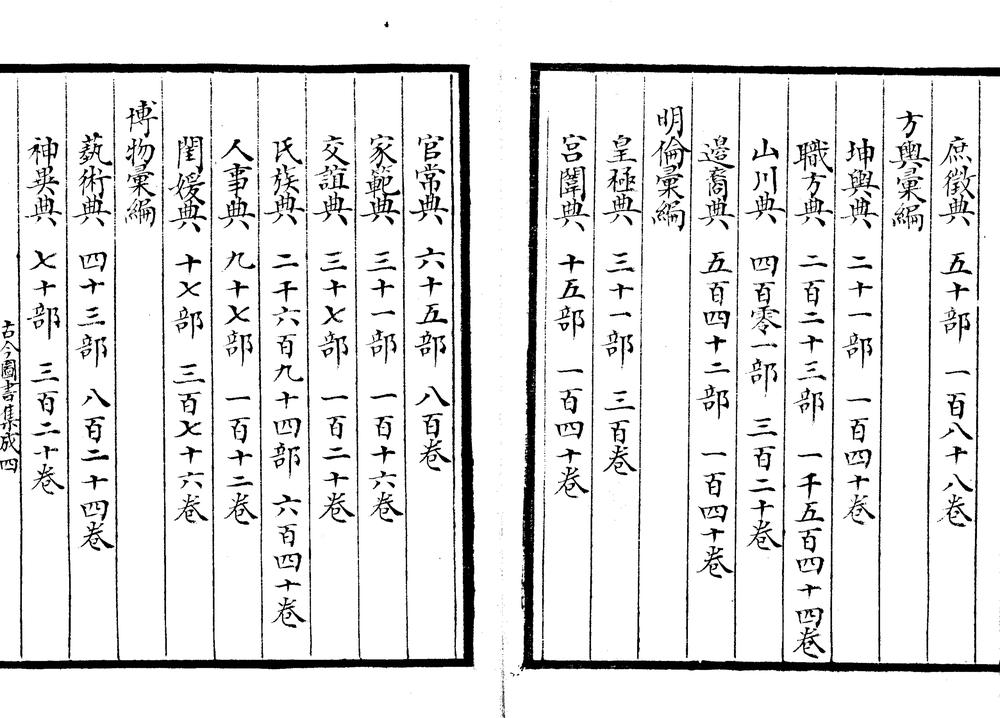 庶徵典 五十部 一百八十八卷
方輿彙編
坤輿典 二十一部 一百四十卷
職方典 二百二十三部 一千五百四十四卷
山川典 四百零一部 三百二十卷
邊裔典 五百四十二部 一百四十卷
明倫彙編
皇極典 三十一部 三百卷
宮闈典 十五部 一百四十卷
官常典 六十五部 八百卷
家範典 三十一部 一百十六卷
交誼典 三十七部 一百二十卷
氏族典 二千六百九十四部 六百四十卷
人事典 九十七部 一百十二卷
閨媛典 十七部 三百七十六卷
博物彙編
藝術典 四十三部 八百二十四卷
神異典 七十部 三百二十卷
古今圖書集成 四